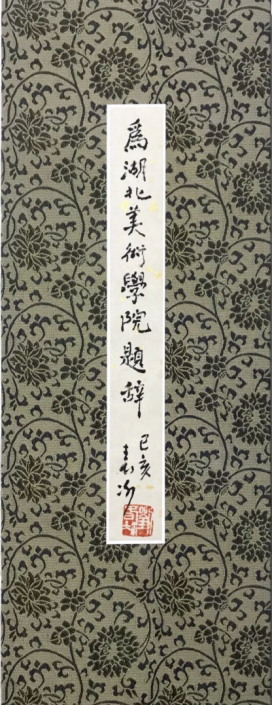 爲湖北美術學院題辭
己亥